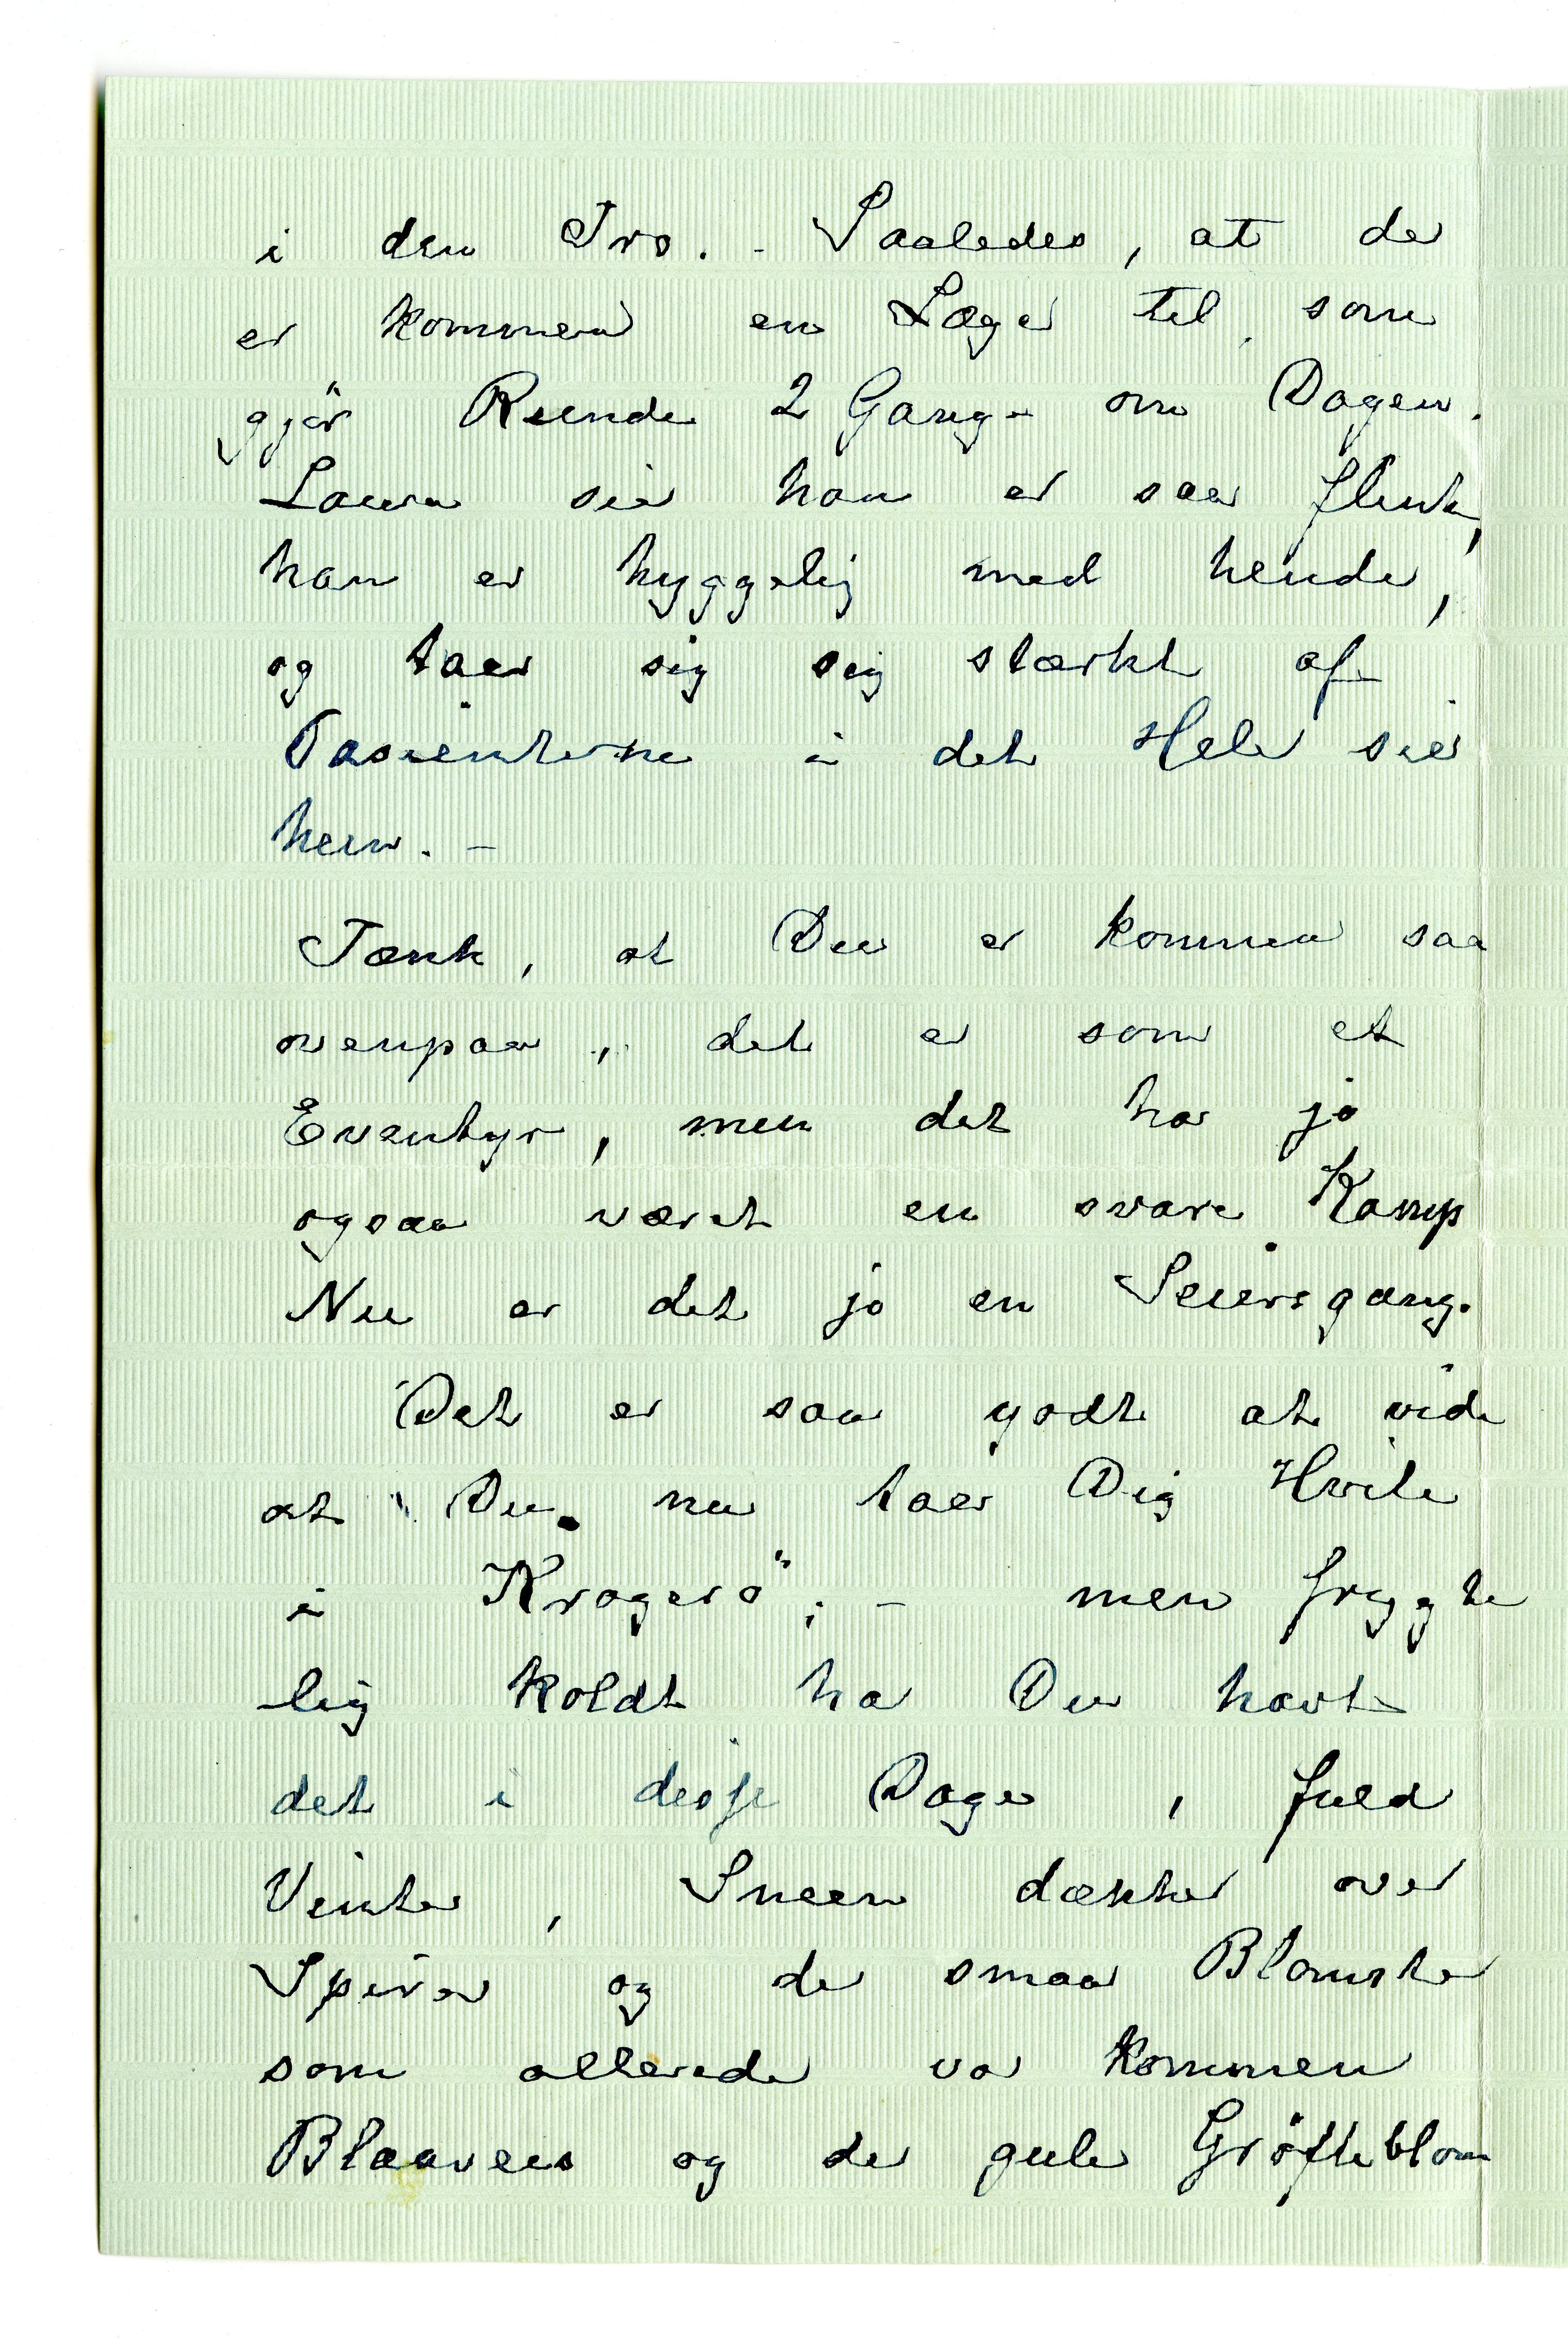 i den Tro. - Saaledes, at de
er kommen en Læge til som
gjör Runde 2 Gange om Dagen.
Laura sier han er saa flink,
han er hyggelig med hende,
og taer sig sig stærkt af
Pasienterne i det Hele sier
hun. -
Tænk, at Du er kommen saa
ovenpaa, det er som et
Eventyr, men det har jo
ogsaa været en svare Kamp
Nu er det jo en Seiersgang.
Det er saa godt at vide
at Du nu taer Dig Hvile
i Kragerö; - men frygte
lig koldt har Du havt
det i disse Dage, fuld
Vinter, Sneen dækker over
Spirer og de smaa Blomster
som allerede var kommen
Blaaveis og de gule Gröfteblom